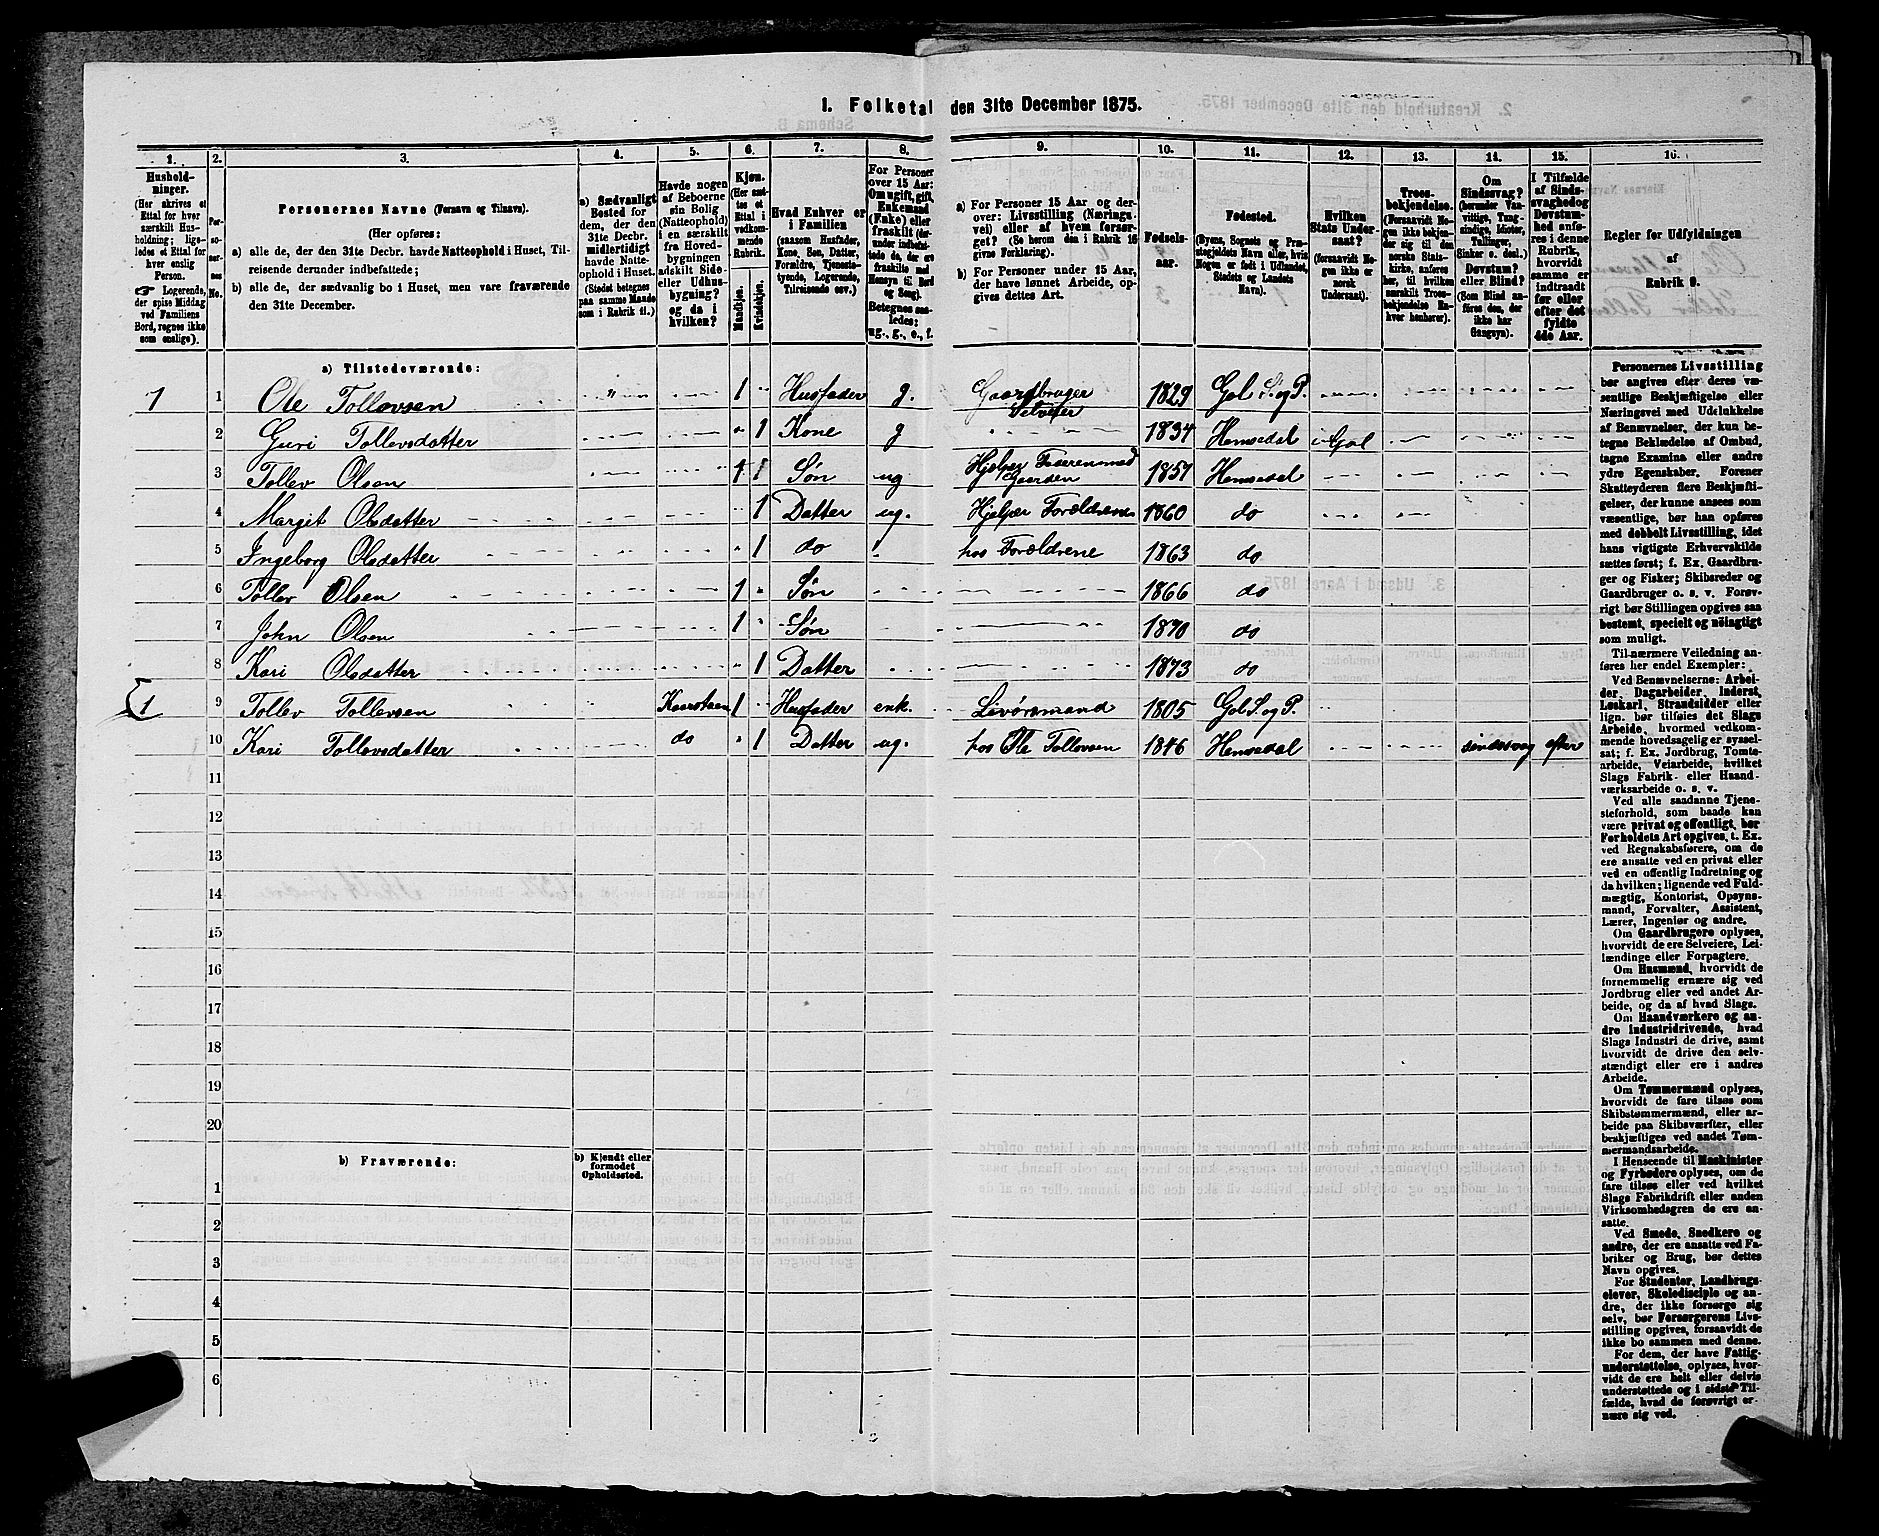 1. Folketal den 31te December 1875.
1. 2. 3. 4. 5. 6. 7. 8. 9. 10. 11. 12. 13. 14. 15. 16.
Husholdninger.
(Her skrives et Ettal for hver særskilt Husholdning; ligeledes et Ettal for hver enslig Person.
☞ Logerende, der spise Middag ved Familiens Bord, regnes ikke som enslige).
Personernes No.
Personernes Navne (Fornavn og Tilnavn).
(Her opføres:
a) alle de, der den 31te Decbr. havde Natteophold i Huset, Tilreisende derunder indbefattede;
b) alle de, der sædvanlig bo i Huset, men vare fraværende den 31te December.
a) Sædvanligt Bosted for dem, der den 31te Decbr. midlertidigt havde Natteophold i Huset. (Stedet betegnes paa samme Maade som i Rubrik 11.)
Havde nogen af Beboerne sin Bolig (Natteophold) i en særskilt fra Hovedbygningen adskilt Side- eller Udhusbygning? og da i hvilken?
Kjøn. (Her sættes et Ettal i vedkommende Rubrik.
Mandkjøn. Kvindekjøn.
Hvad Enhver er i Familien (saasom Husfader, Kone, Søn, Datter, Forældre, Tjenestetyende, Logerende, Tilreisende osv.)
For Personer over 15 Aar: Om ugift, gift, Enkemand (Enke) eller fraskilt (derunder indbefattede de, der ere fraskilte med Hensyn til Bord og Seng). Betegnes saaledes: ug., g., e., f.
a) For Personer 15 Aar og derover: Livsstilling (Næringsvei) eller af hvem forsørget? (Se herom den i Rubrik 16 givne Forklaring).
b) For Personer under 15 Aar, der have lønnet Arbeide, opgives dettes Art.
Fødselsaar.
Fødested.
(Byens, Sognets og Præstegjeldets Navn eller, hvis Nogen er født i Udlandet, Stedets og Landets Navn).
Hvilken Stats Undersaat?
(forsaavidt Nogen ikke er norsk Undersaat).
Troesbekjendelse.
(Forsaavidt Nogen ikke bekjender sig til den norske Statskirke, anføres her, til hvilken særskilt Troesbekjendelse Enhver henhører).
Om Sindssvag? (herunder Vanvittige, Tungsindige, Idioter, Tullinger, Sinker o. desl.) Døvstum? eller Blind? (Som Blind anføres den, der ikke har Gangsyn).
I Tilfælde af Sindssvaghed og Døvstumhed anføres i denne Rubrik, hvorvidt samme er indtraadt før eller efter det fyldte 4de Aar.
Regler for Udfyldningen
af
Rubrik 9.
a) Tilstedeværende:
1 1 Ole Tollovsen 1 Husfader g. Gaardbruger Selveier 1829 Gol S. og P.
2 Guri Tollevsdatter 1 Kone g 1834 Hemsedal i Gol
3 Tollev Olsen 1 Søn ug Hjelper Faderen med Gaarden 1857 Hemsedal
4 Margit Olsdatter 1 Datter ug. Hjelper Forældrene 1860 do
5 Ingeborg Olsdatter 1 do hos Forældrene 1863 do
6 Tollev Olsen 1 Søn 1866 do
7 John Olsen 1 Søn 1870 do
8 Kari Olsdatter 1 Datter 1873 do
1 9 Tollev Tollevsen 1 Husfader enk. Livørsmand 1805 Gol S. og P.
10 Kari Tollovsdatter do 1 Datter ug. hos Ole Tollovsen 1846 Hemsedal sindssvag efter
11
12
13
14
15
16
17
18
19
20
b) Fraværende:
b) Kjendt eller formodet Opholdssted.
1
2
3
4
5
6
Personernes Livsstilling
bør angives efter deres væ-
sentlige Beskjæftigelse eller
Næringsvei med Udelukkelse
af Benævnelser, der kun be-
tegne Beklædelse af Ombud,
tagne Examina eller andre
ydre Egenskaber. Forener
Skatteyderen flere Beskjæfti-
gelser, der kunne ansees som
væsentlige, bør han opføres
med dobbelt Livsstilling, idet
hans vigtigste Erhvervskilde
sættes først; f. Ex. Gaardbru-
ger og Fisker; Skibsreder og
Gaardbruger o. s. v. Forøv-
rigt bør Stillingen opgives saa
bestemt, specielt og nöiagtigt
som muligt.
Til nærmere Veiledning an-
føres her endel Exempler:
Ved Benævnelserne: Arbei-
der, Dagarbeider, Inderst,
Løskarl, Strandsidder eller
lign. bør tilføies det Slags
Arbeide, hvormed vedkom-
mende hovedsagelig er syssel-
sat; f. Ex. Jordbrug, Tomte-
arbeide, Veiarbeide, hvilket
Slags Fabrik- eller Haand-
værksarbeide o. s. v.
Ved alle saadanne Tjene-
steforhold, som baade kan
være privat og offentligt, bør
Forholdets Art opgives, t. Ex.
ved Regnskabsførere, om de
ere ansatte ved en privat eller
ved en offentlig Indretning og
da hvilken; lignende ved Fuld-
mægtig, Kontorist, Opsyns-
mand, Forvalter, Assistent,
Lærer, Ingeniør og andre.
Om Gaardbrugere oplyses,
hvorvidt de ere Selveiere, Lei-
lændinge eller Forpagtere.
Om Husmænd, hvorvidt de
fornemmelig ernære sig ved
Jordbrug eller ved andet Ar-
beide, og da af hvad Slags.
Om Haandværkere og an-
dre Industridrivende, hvad
Slags Industri de drive, samt
hvorvidt de drive den selv-
stændigt eller ere i andres
Arbeide.
Om Tømmermænd oplyses,
hvorvidt de fare tilsøs som
Skibstømmermænd, eller ar-
beide paa Skibsværfter, eller
beskjæftiges ved andet Tøm-
mermandsarbeide.
I Henseende til Maskinister
og Fyrbødere oplyses, om de
fare tilsøs eller ved hvilket
Slags Fabrikdrift eller anden
Virksomhedsgren de ere an-
satte.
Ved Smede, Snedkere og
andre, der ere ansatte ved Fa-
briker og Brug, bør dettes
Navn opgives.
For Studenter, Landbrugs-
elever, Skoledisciple og an-
dre, der ikke forsørge sig
selv, bør Forsørgerens Livs-
stilling opgives, forsaavidt de
ikke bo sammen med denne.
For dem, der have Fattig-
understøttelse, oplyses, hvor-
vidt de ere helt eller delvis
understøttede og i sidste Til-
fælde, hvad de forøvrigt er-
nære sig ved.